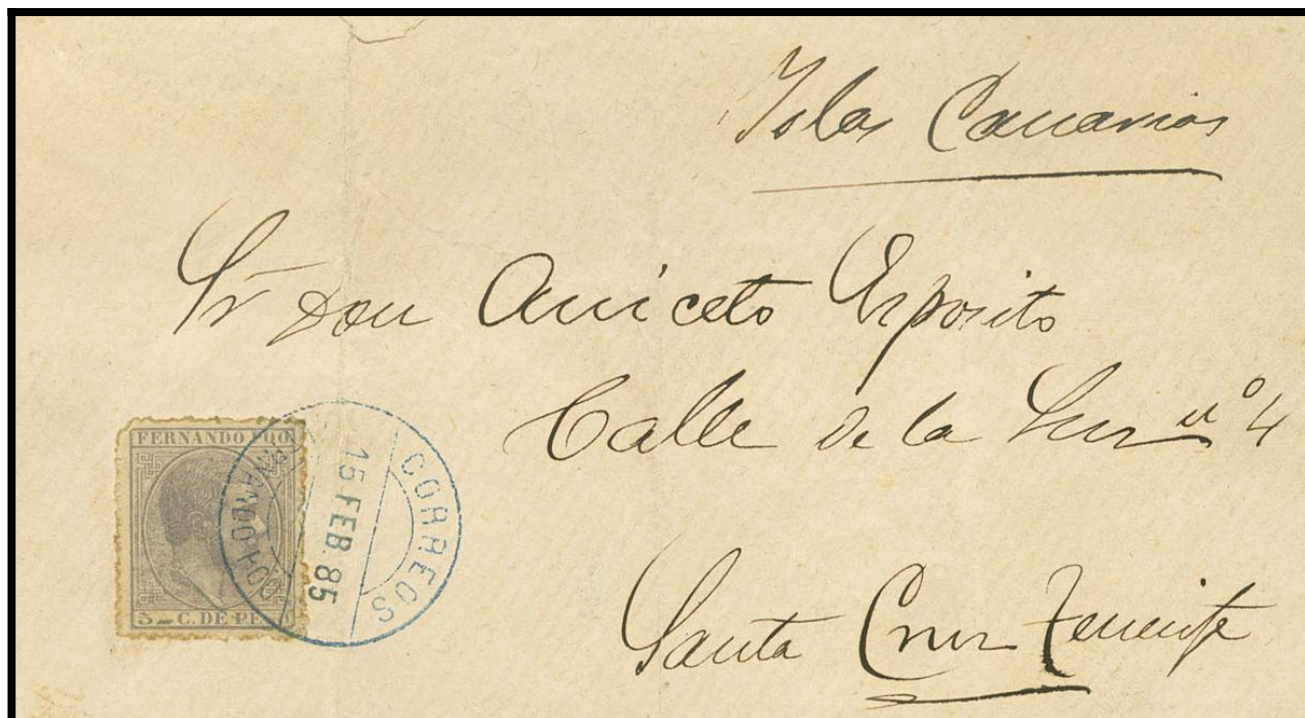 Islas Canarias
Sr Don Aniceto Esposito
Calle de la Luz nº 4
Santa Cruz Tenerife
FERNANDO POO
5 C. DE PESO
CORREOS
15 FEB. 85
FERNANDO POO